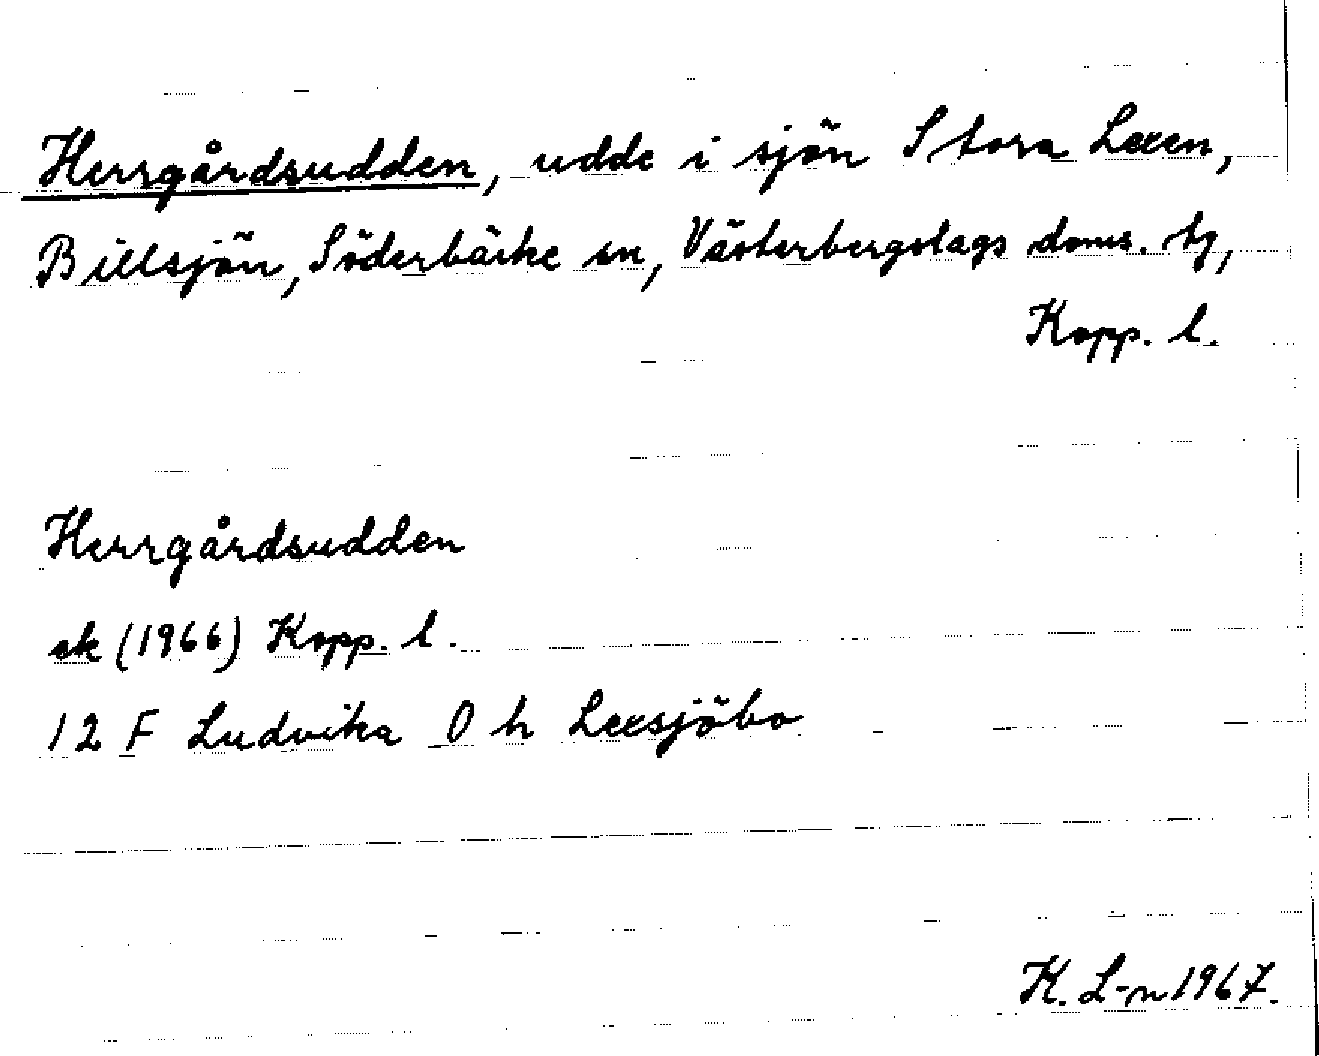 Herrgårdsudden, udde i sjön Stora Lexen,
Billsjön, Söderbärke sn, Västerbergslags doms. tg,
Kopp. l.
Herrgårdsudden
ek (1966) Kopp. l.
12 F Ludvika 0 h Lexsjöbo
K. L-n 1967.